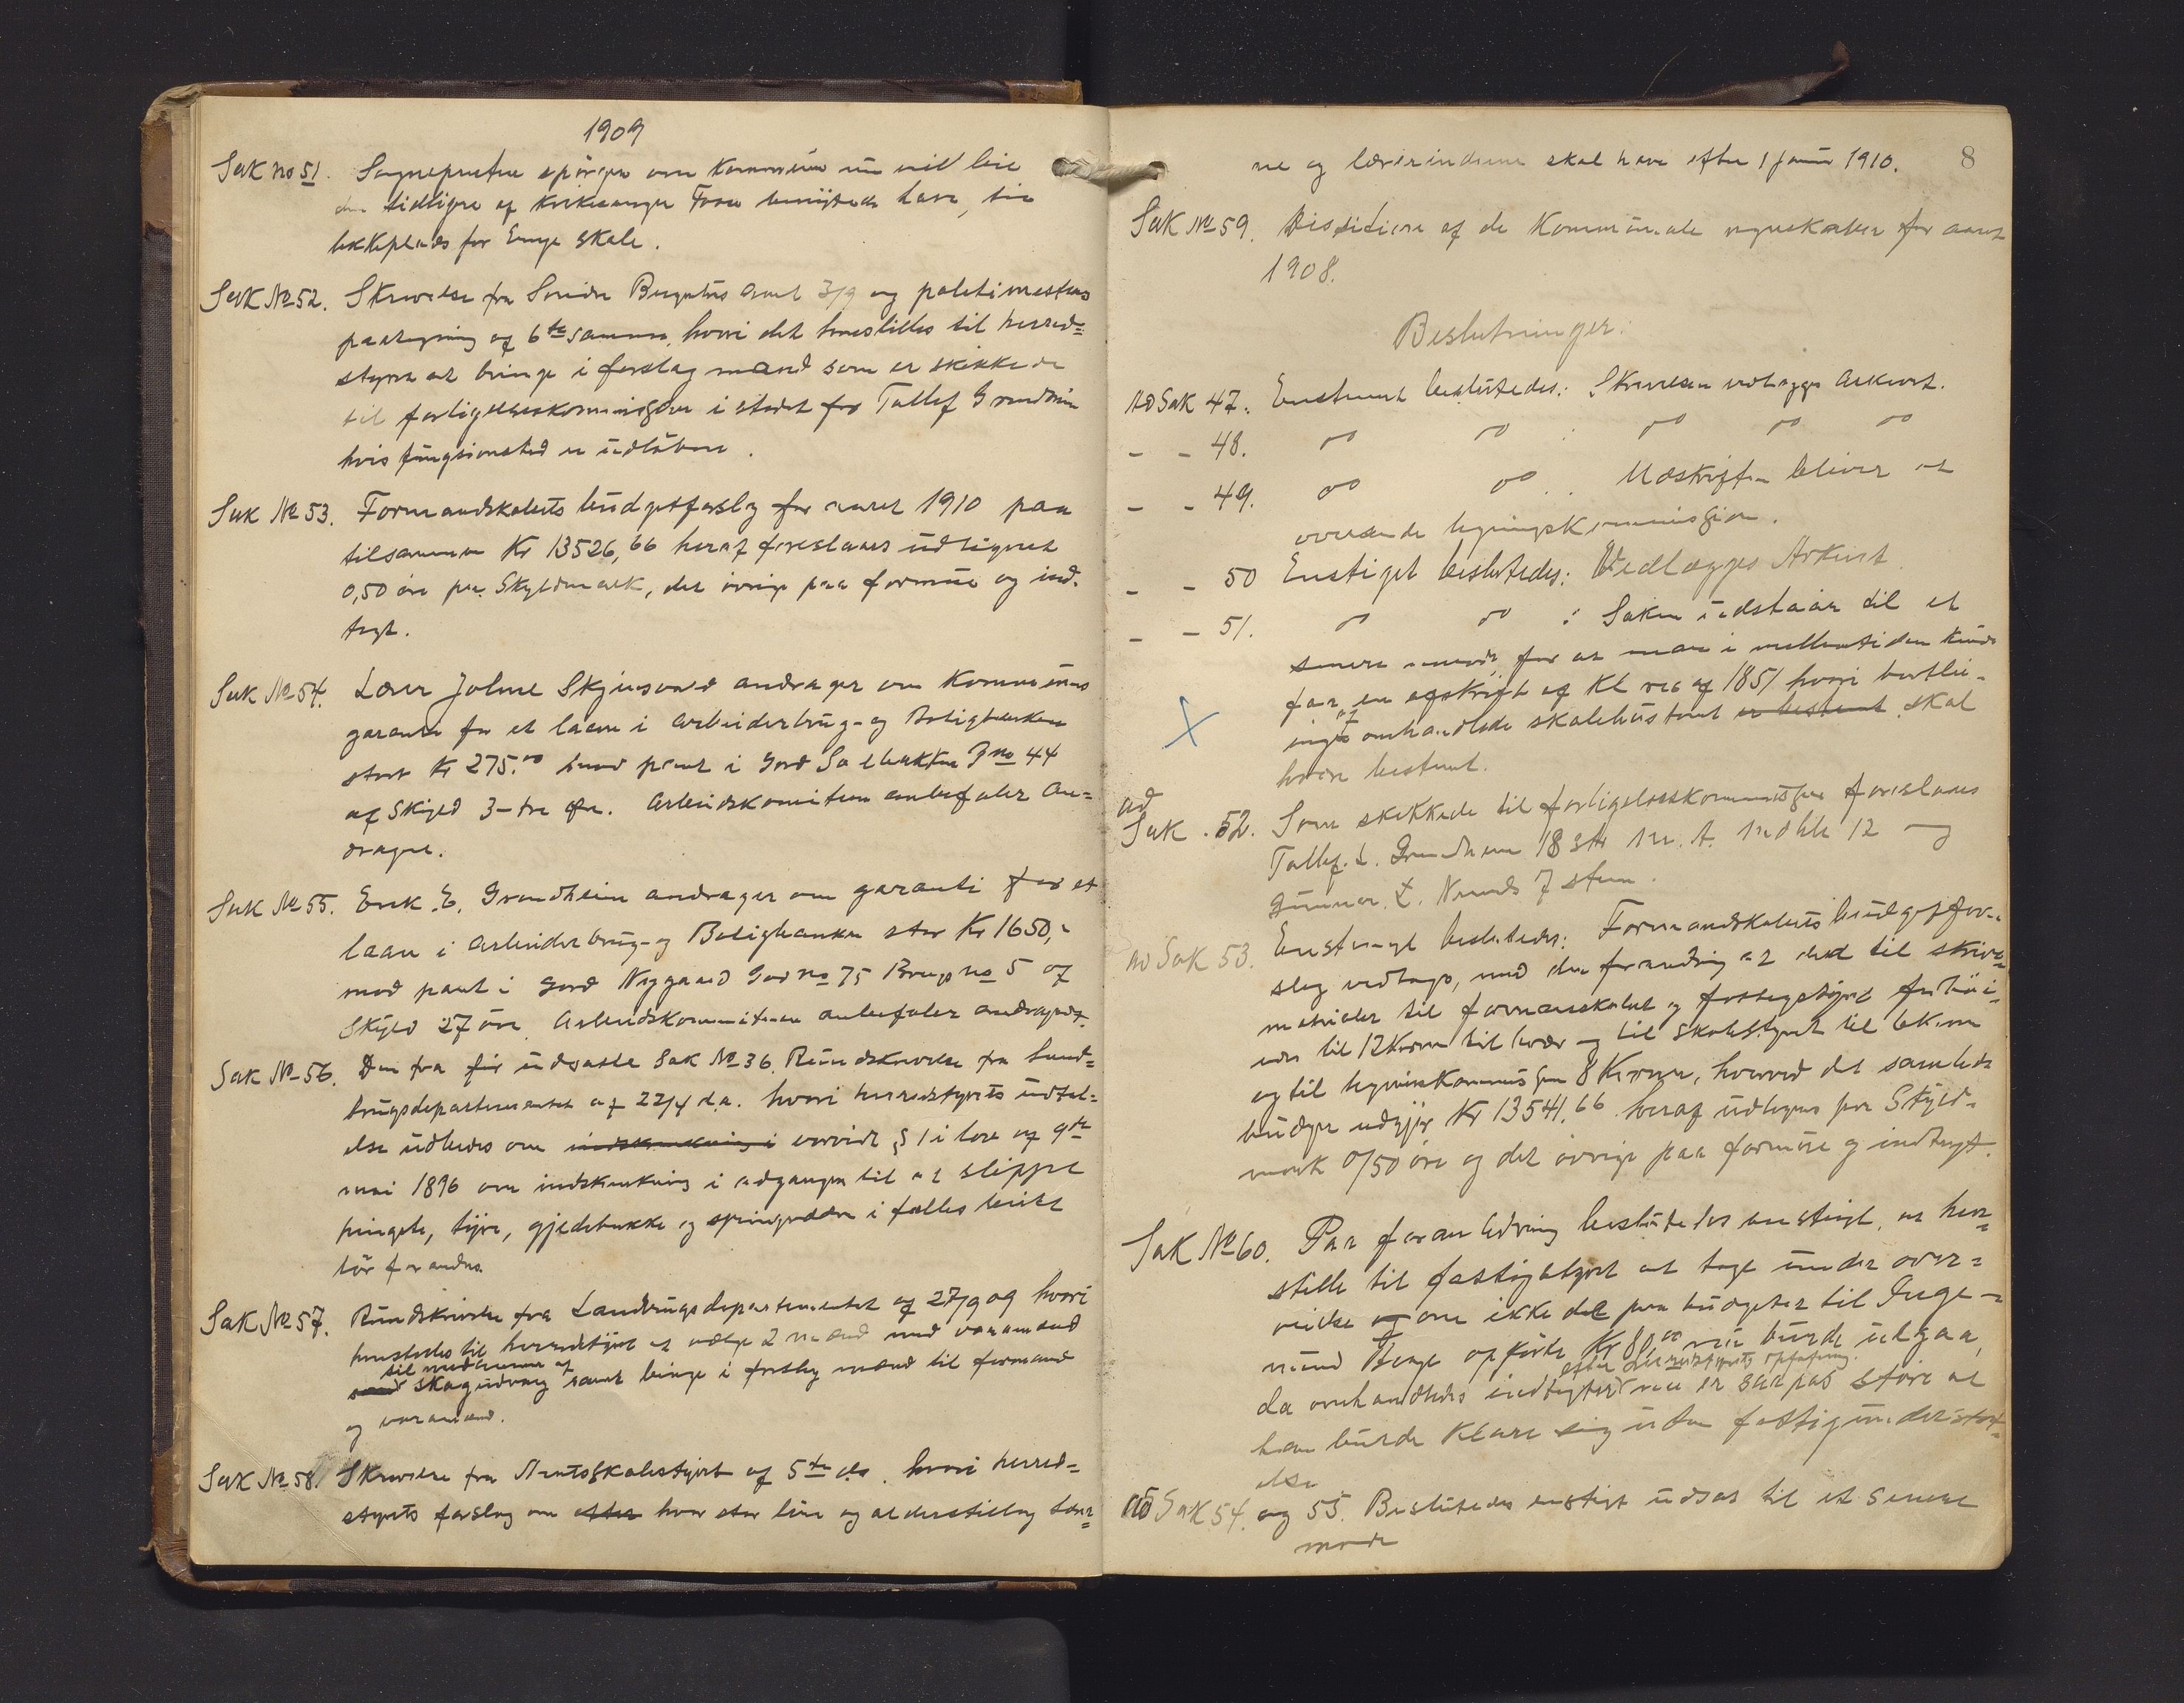 1909
Sak no 51. Sognepresten spörger om Kommunen nu vil leie
den tidligere af Kirkesanger Foss benyttede have, til
lekkeplads for Eunge Skole.
Sak No 52. Skrivelse fra Sondre Burgutus 3/9 og politimesterens
paategning af 6te samme, hvori det henstilles til herred=
styret at bringe i forslag mænd som er skikkede
til forligelseskommissær i stedet for Tallef Grundheim
hvis fungsionstid er udlöben.
Sak No 53. Formandskabets budgetforslag for aaret 1910 paa
tilsammen Kr 13526,66 heraf foreslaaes udlignet
0,50 öre pr. Skyldmark, det övrige paa formue og ind-
tægt.
Sak No 54. Lærer Johne Skjevrand andrager om Kommunens
garanti for et laan i Arbeiderbrug- og Boligbanken
stort Kr 275.00 mod pant i Gord Gno 44
af Skyld 3-tre öre. Arbeidskomiteen anbefaler An=
dragne.
Sak No 55. Erik E. Grundheim andrager om garanti for et
laan i Arbeiderbrug- og Boligbanken stor Kr 1650,-
mod pant i Gord Nygaard Gor no 75 Brugs no 5 af
Skyld 27 öre. Arbeidskommiteen anbefaler andragendet.
Sak No 56. Den fra för udsatte Sak No 36. Rundskrivelse fra Land=
brugsdepartementet af 22/4 d.a. hvori herredstyrets udtal=
else udbedes om indskrænkning i vorvidt § 1 i lov af 9de
mai 1896 om indskrænkning i adgangen til at slippe
hingste, tyre, gjedebukke og springvædre i fælles beite
bör forandres.
Sak No 57. Rundskrivelse fra Landbrugsdepartementet af 27/9 09 hvori
henstilles til herredstyret at vælge 2 mænd med varamænd
til medlemmer af
skogudvalg samt bringe i forslag mænd til formand
og varamænd.
Sak No 58. Skrivelse fra Amtsskolestyret af 5te ds. hvori herred=
styrets forslag om efter hvor stor lön og alderstillæg lærer=
8
ne og lærerinderne skal have efter 1 januar 1910.
Sak No 59. Desidiare af de Kommunale regnskaber for aaret
1908.
Beslutninger:
ad Sak 47. Enstemt besluttedes: Skrivelsen vedlægges Arkivet.
- - 48. do do : do do do
- - 49. do do : Udskriften bliver at
oversende ligningskommission.
- - 50 Enstiget besluttedes: Vedlægges Arkivet
- - 51. do do : Saken udstaar til et
senere möde for at man i mellemtiden kunde
faa en afskrift af Kl res af 1851 hvori bortlei-
ingen af omhandlede skolehustomt er bestemt skal
være bestemt.
ad
Sak . 52. Som skikkede til forligelseskommissær foreslaaes
Tallef. L. Grundheim 18 st. m. A. 12 og
Gunnar. L. Nomds 7 stem.
ad Sak 53. Enstemigt besluttedes: Formandskabets budgetfor-
slag vedtages, med den forandring at det til skrive=
matrialer til formanskabet og fattigstyret
til 12 Kroner til hver og til skolestyret til 6 Kroner
og til ligninskommission 8 Kroner, hvorved det samlede
budget udgjör Kr 13541.66 heraf udlignes per Skyld-
mark 0/50 öre og det övrige paa formue og indtægt.
Sak No 60. Paa foranledning besluttedes enstigt, at hen=
stille til fattigstyret at tage under over=
veielse og om ikke det paa budgettet til Inge-
mund Henge opförte Kr 80,00 nu burde udgaa,
efter herredstyrets opfatning
da omhandledes indtægter nu er saa pas störe at
han burde Klare sig uten fattigunderstöt=
else
ad Sak 54. og 55. Besluttedes enstigt udsat til et senere
möde